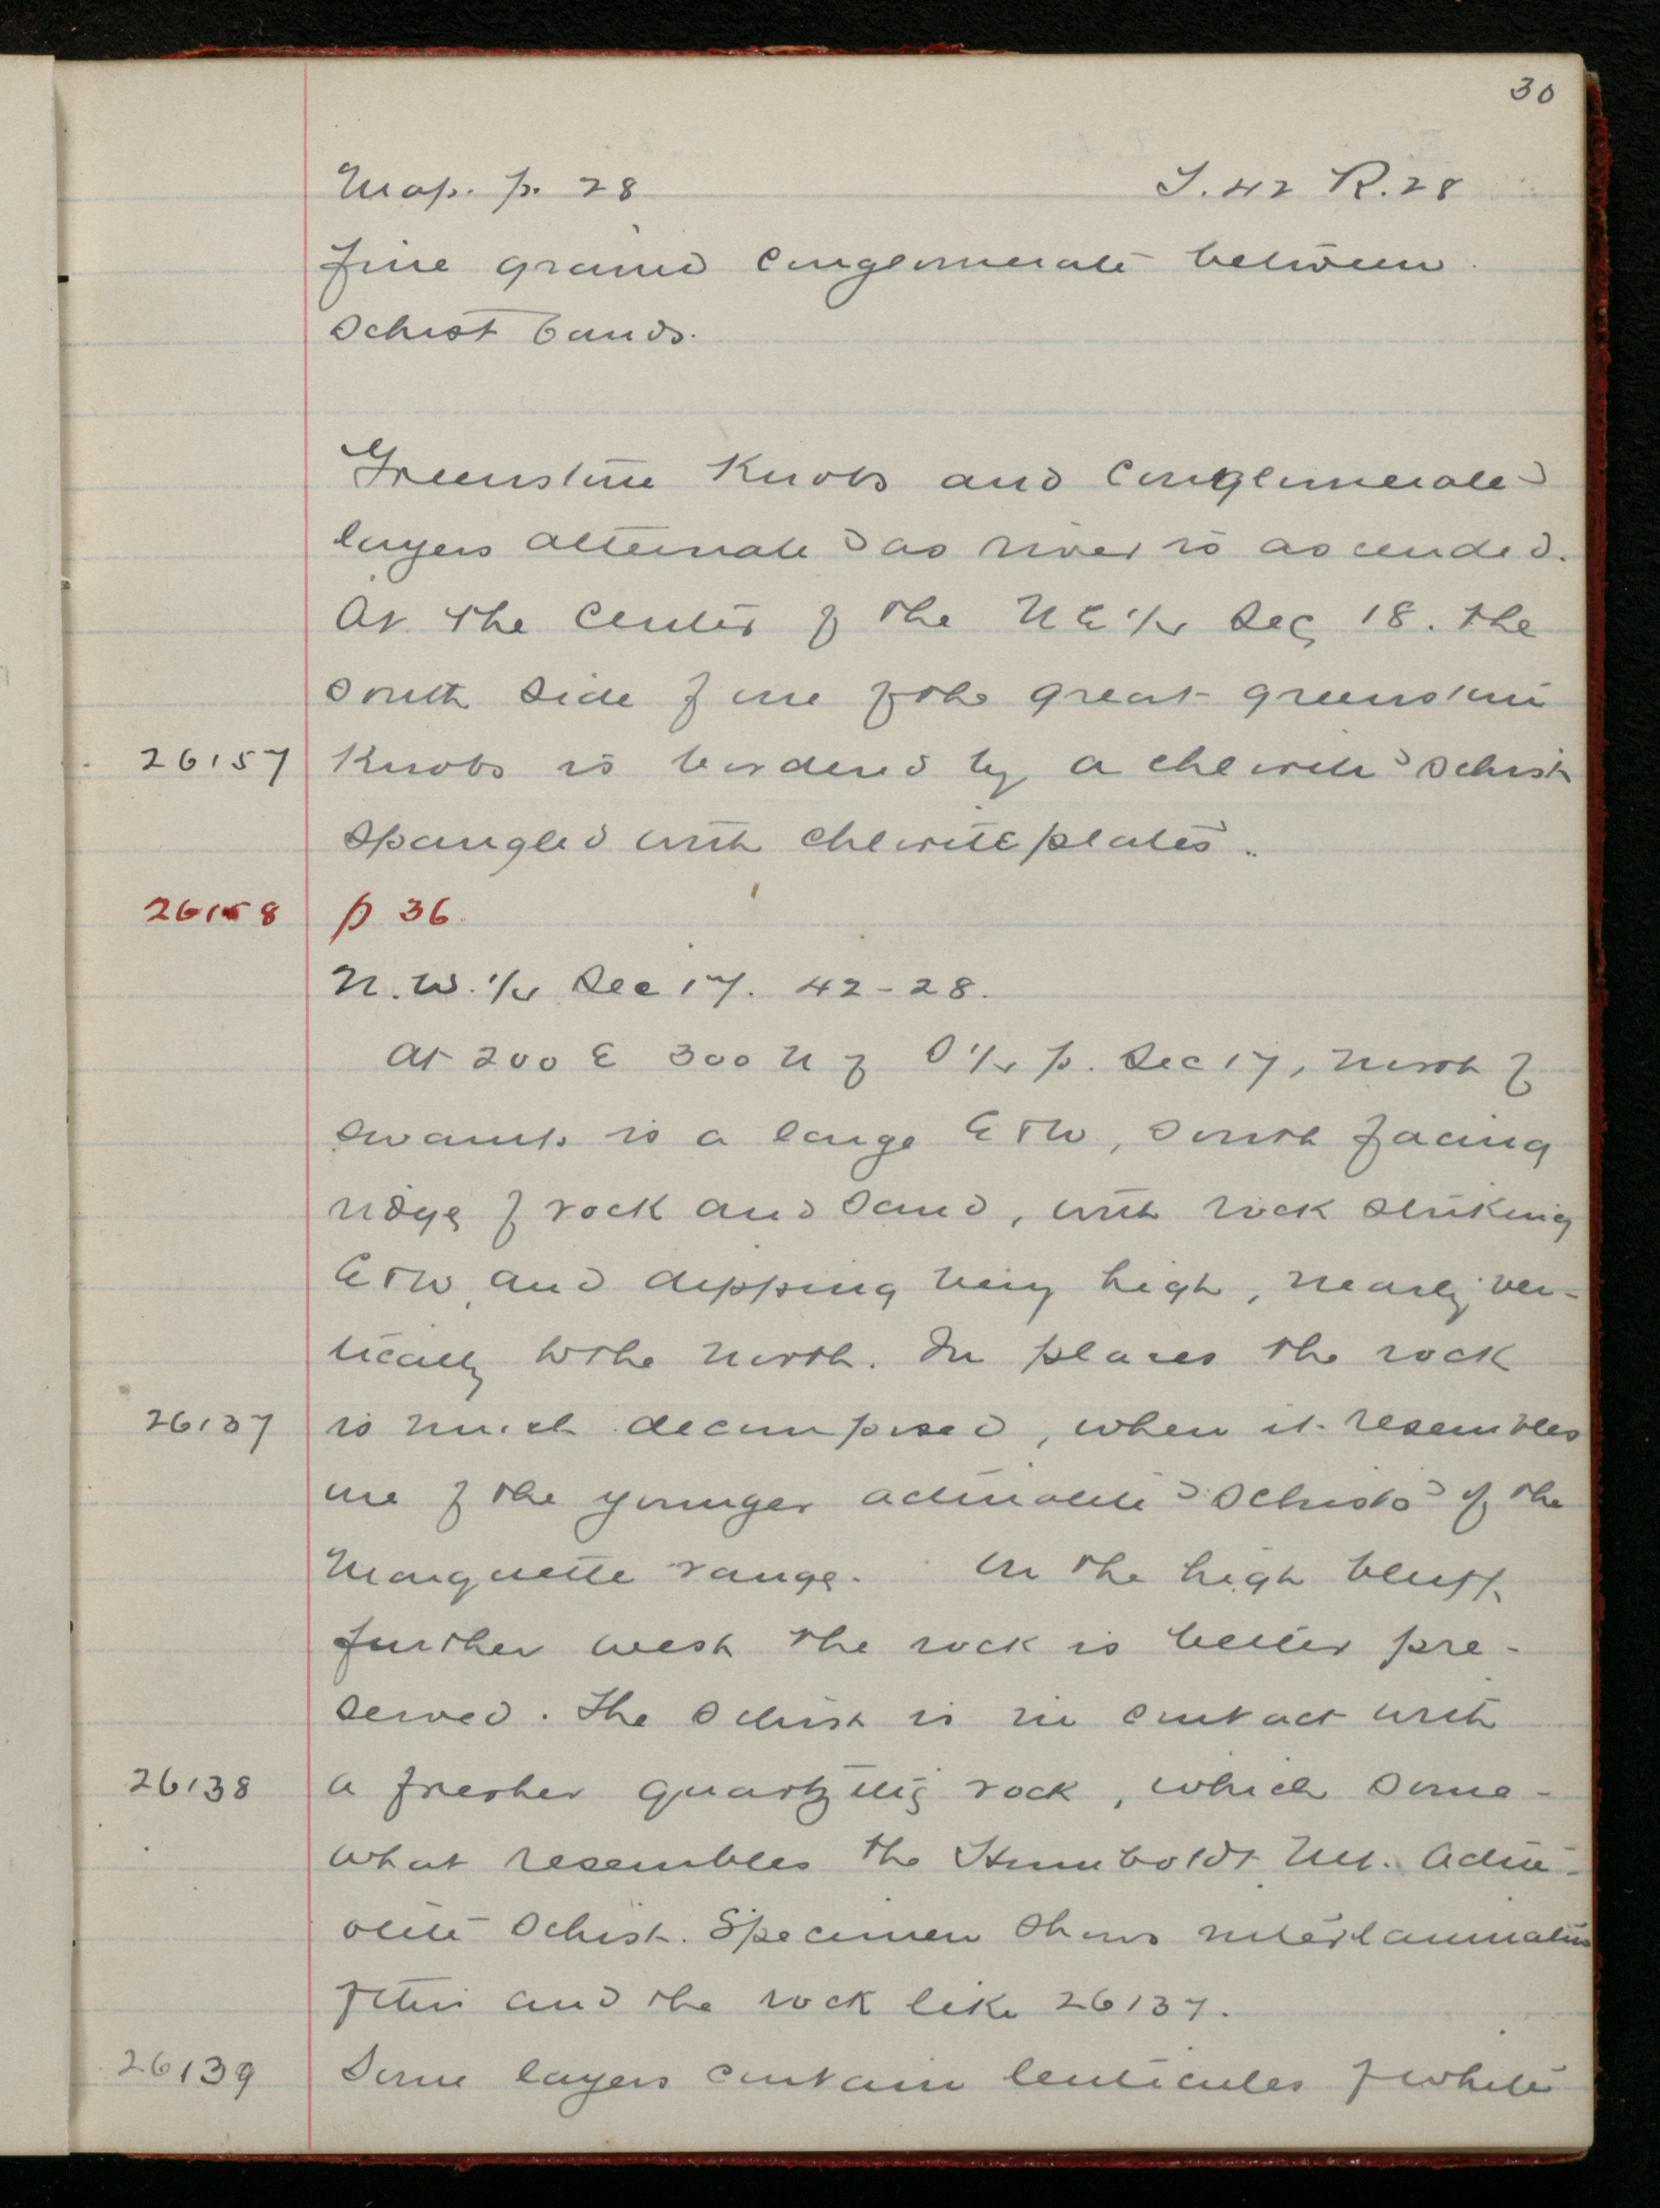 30
Map. p. 28 T. 42 R. 28
fine grained conglomerate between
schist bands.
Greenstone Knobs and Conglomerate
layers alternate as river is ascended.
At the center of the N E 1/4 Sec 18. the
south side of one of the great greenstone
26157 Knobs is bordered by a chlorite schist
spangled with chlorite plates.
26158 p 36.
N.W. 1/4 Sec 17. 42-28.
At 200 E 300 N of S 1/4 p. Sec 17, north of
swamp is a large E & W, south facing
ridge of rock and sand, with rock striking
E & W, and dipping very high, nearly ver-
tically to the north. In places the rock
26137 is much decomposed, when it resembles
one of the younger actinolite schists of the
Marquette range. In the high bluff
further west the rock is better pre-
served. The schist is in contact with
26138 a fresher quartzitic rock, which some-
what resembles the Humboldt Mt. Actin-
olite schist. Specimen shows interlamination
of this and the rock like 26137.
26139 Some layers contain lenticules of white